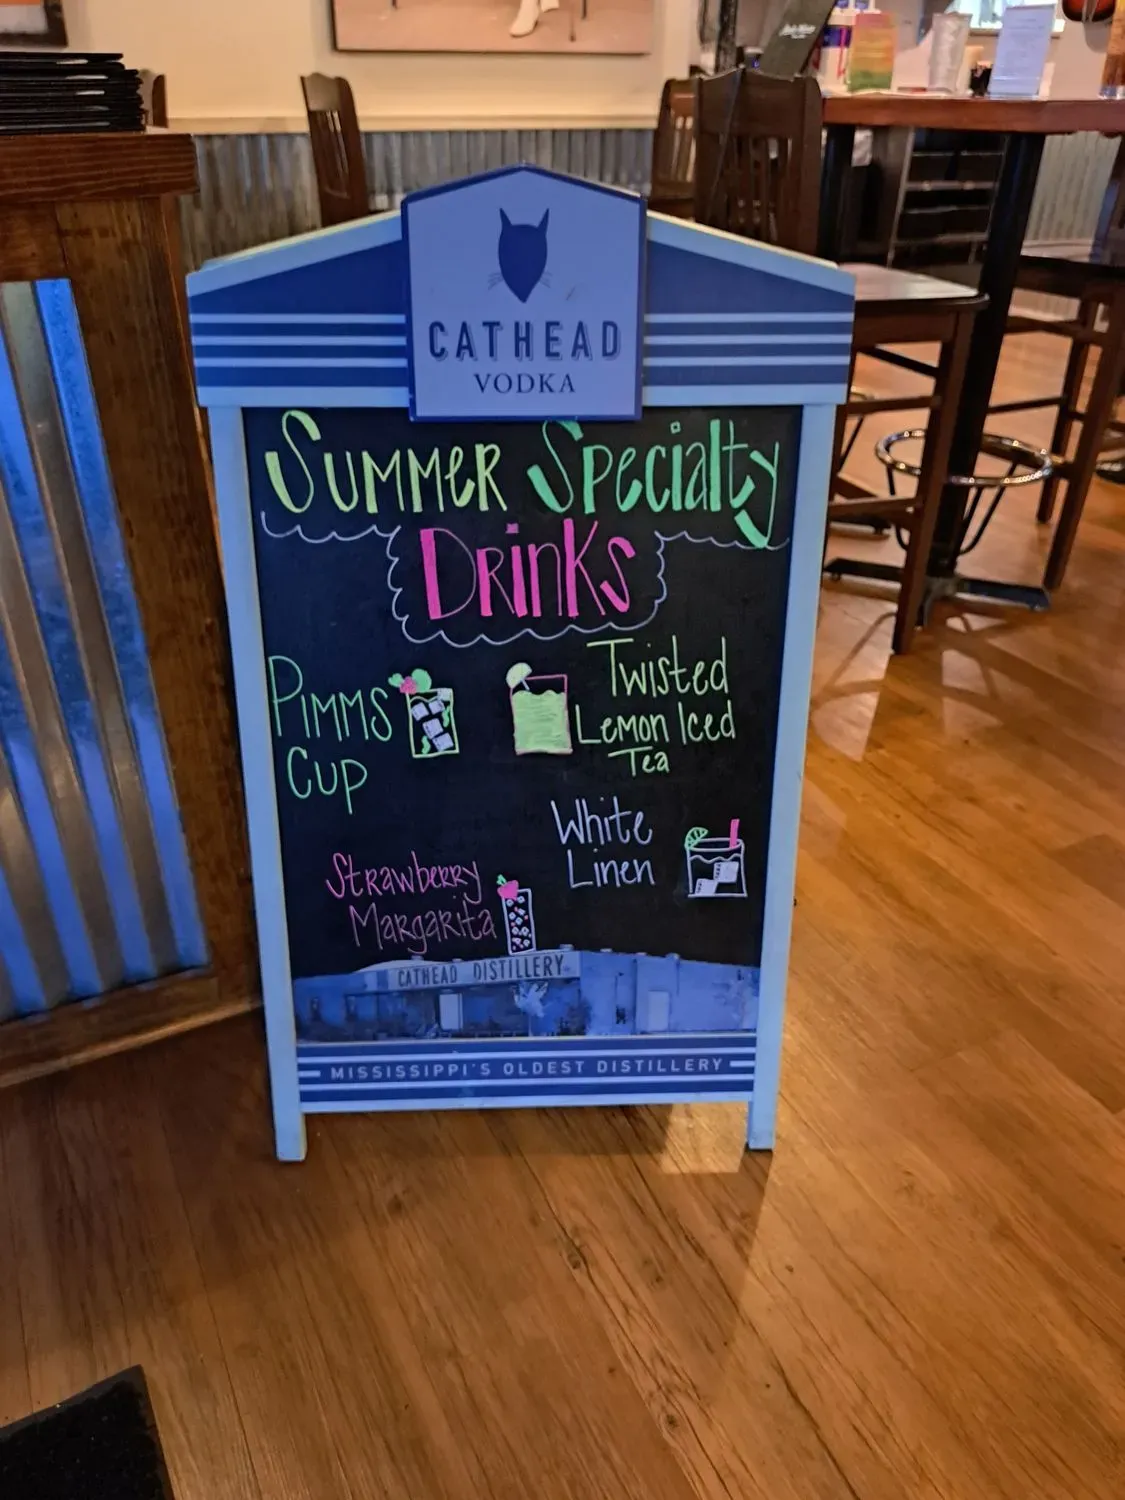 CATHEAD
VODKA
SUMMER SPECIALTY
DRINKS
PIMMS
CUP
TWISTED
LEMON ICED
TEA
WHITE
LINEN
STRAWBERRY
MARGARITA
CATHEAD DISTILLERY
MISSISSIPPI'S OLDEST DISTILLERY